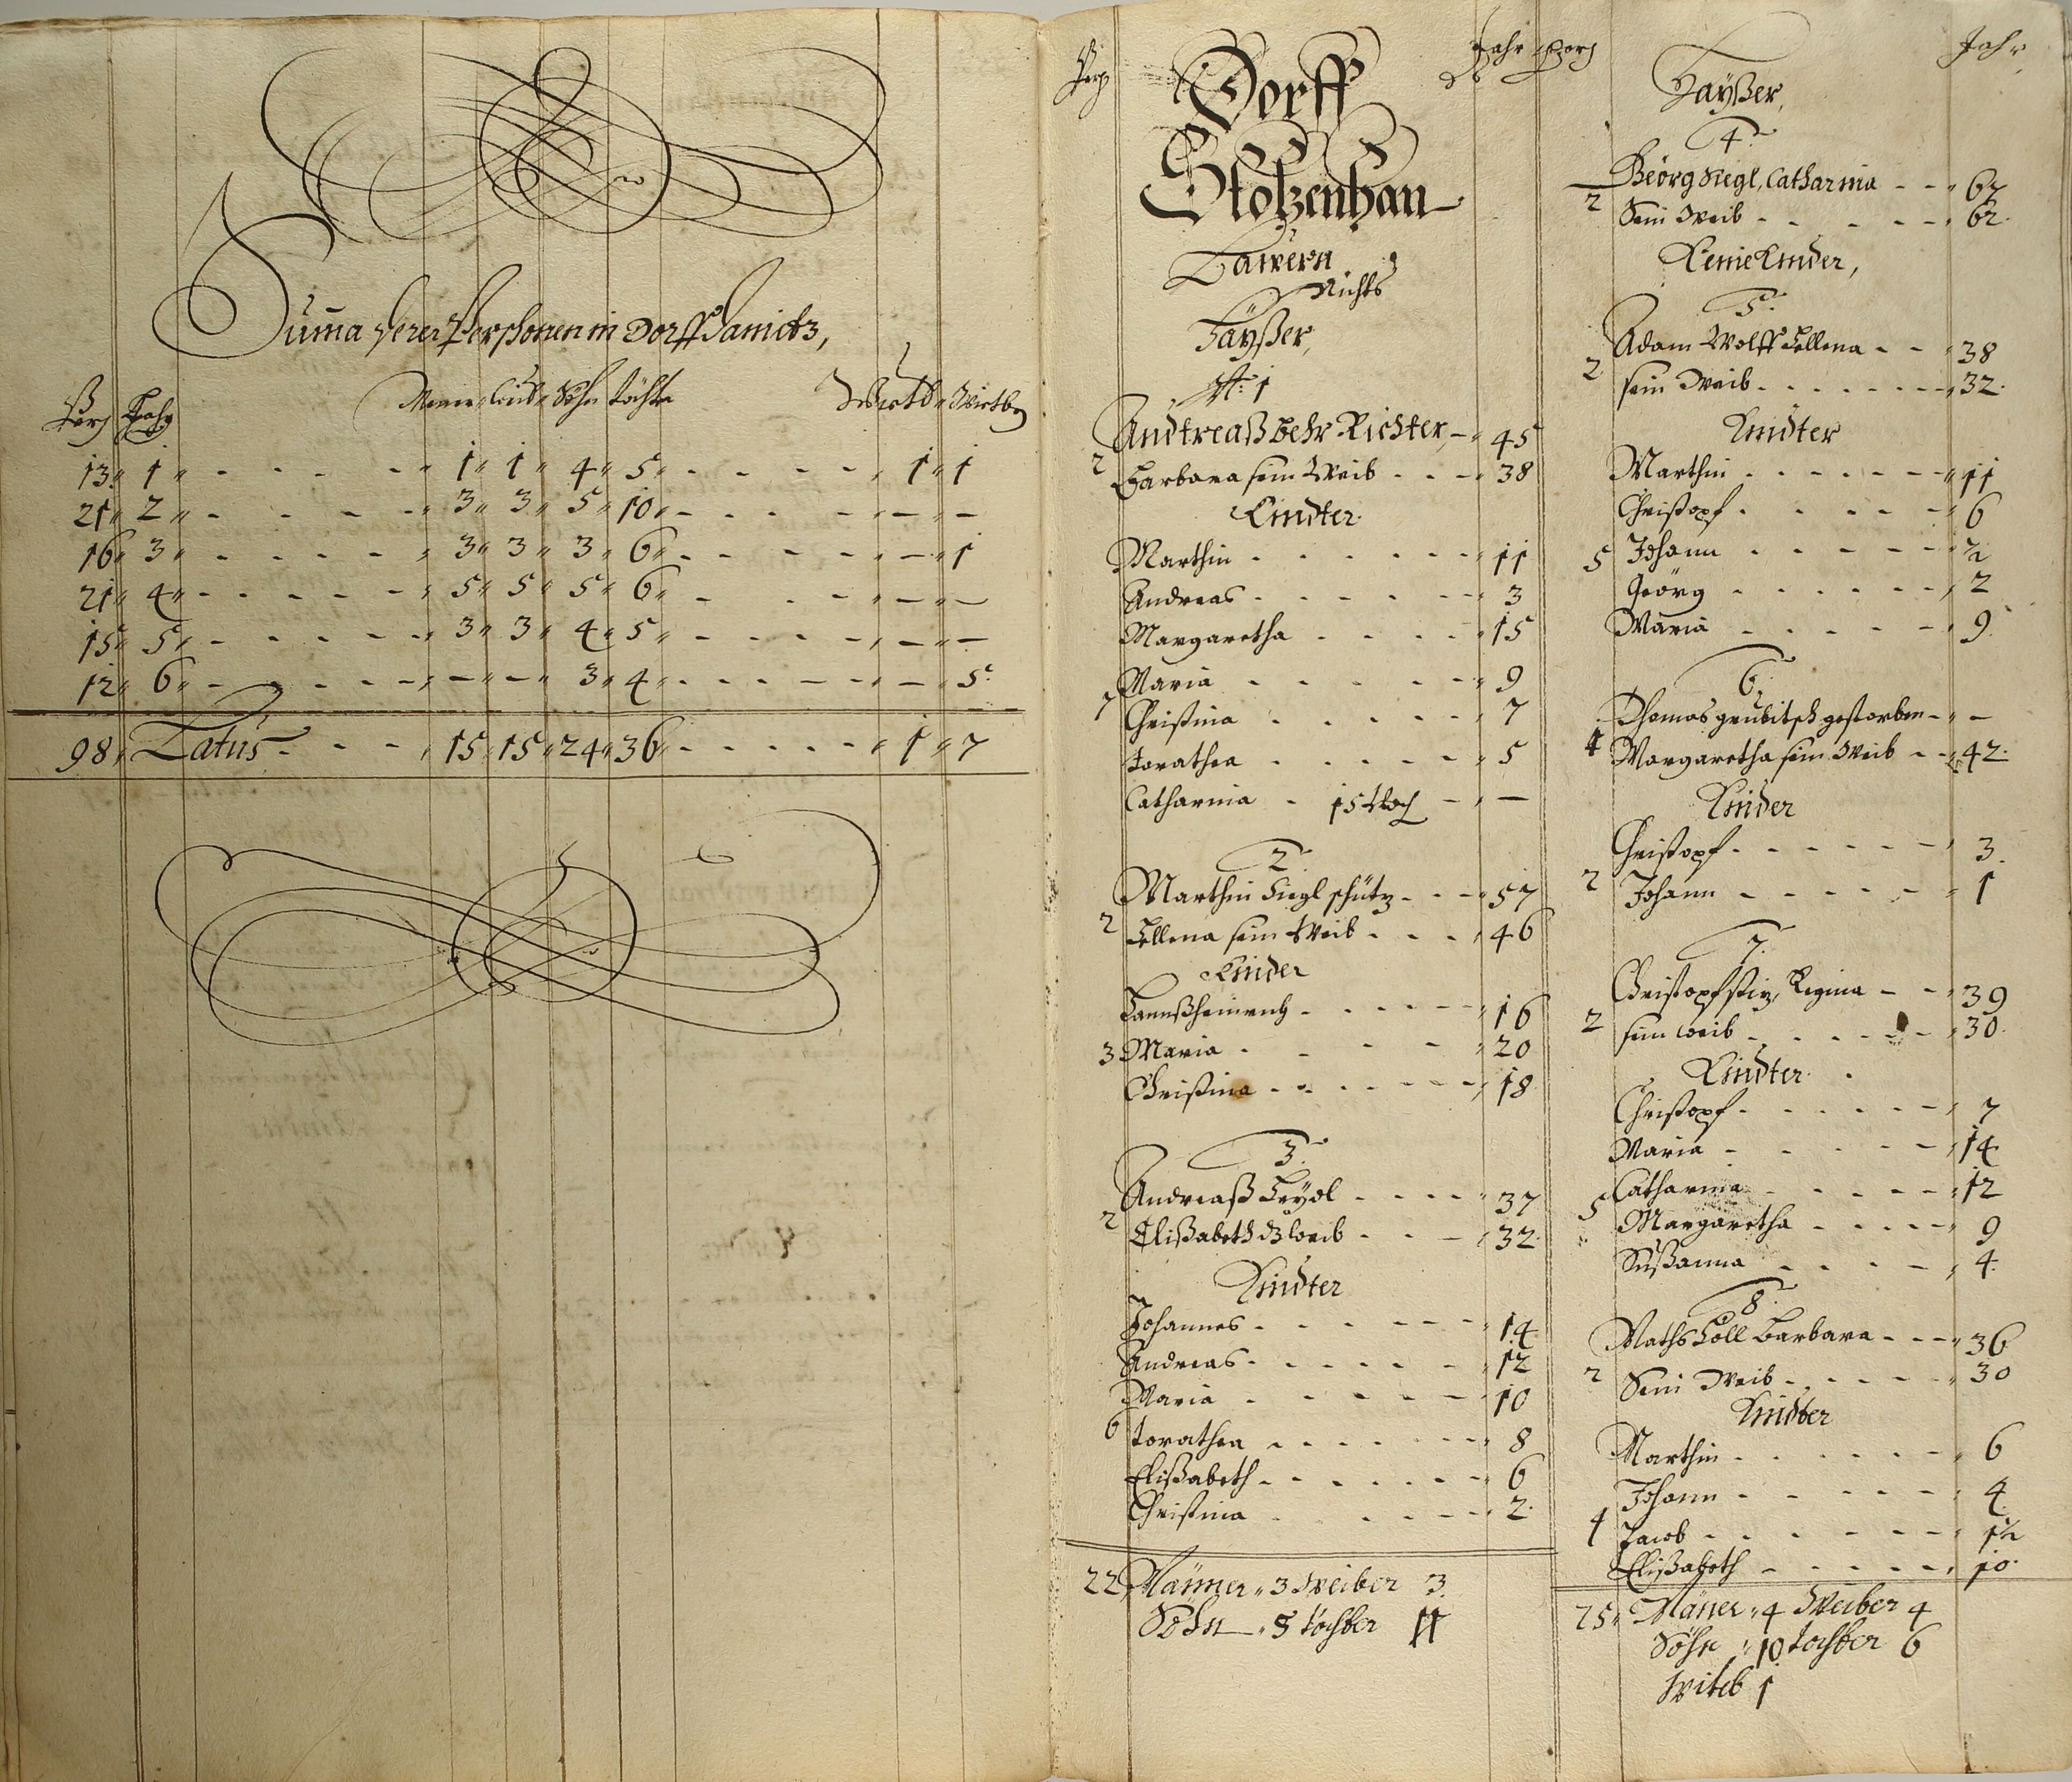 Suma derer Personen in Dorff
Pers Pag Mener Weib Söhn Töchter Wietb Wietby
13 1 - - - - 1 1 4 5 - - - - 1 1
21 2 - - - - 3 3 5 10 - - - - — —
16 3 - - - - 3 3 3 6 - - - - — 1
21 4 - - - - 5 5 5 6 - - - - — —
15 5 - - - - 3 3 4 5 - - - - — —
12 6 - - - - — — 3 4 - - - - — 5
98 Latus - - - 15 15 24 36 - - - - 1 7
Pers Jahr
Dorff
Stolzenhan
Tawern
Nichts
Häyßer,
N: 1
Andreaß behr Richter, - 45
2 Barbara sein Weib - - - 38
Kindter
Marthin - - - - - - 11
Andreas - - - - - - 3
Margaretha - - - - 15
Maria - - - - - 9
7 Christina - - - - - 7
Torathea - - - - - 5
Catharina - 15 Woch - —
2.
Marthin Siegl schütz - - - 57
2 Hellena sein Weib - - - 46
Kinder
Hannßheinrich - - - - - 16
3 Maria - - - - 20
Christina - - - - - - 18
3.
Andreaß - - - - 37
2 Elißabeth weib - - - 32
Kindter
Johannes - - - - - - 14
Andreas - - - - - - 12
Maria - - - - - 10
6 Torathea - - - - - - 8
Elißabeth - - - - - - 6
Christina - - - - - 2
22 Männer 3 Weiber 3
Söhn 5 Töchter 11
Pers Jahr
Häyßer,
4.
Geörg Siegl, Catharina - - 67
2 Sein Weib - - - - - 62
Keine Kinder,
5.
Adam Wolff Hellena - - 38
2 sein Weib - - - - - - - 32
Kindter
Marthin - - - - - - - 11
Christopf - - - - - 6
5 Johann - - - - - ½
Geörg - - - - - - 2
Maria - - - - - 9
6.
Thomas grubitsch gestorben - —
1 Margaretha sein Weib - - 42
Kinder
Christopf - - - - - - 3
2 Johann - - - - - 1
7.
Christopf, Regina - - 39
2 sein weib - - - - - 30
Kindter
Christopf - - - - - - 7
Maria - - - - - 14
Catharina - - - - - 12
5 Margaretha - - - - - 9
Sußanna - - - - 4
8.
Maths Barbara - - - 36
2 Sein Weib - - - - - 30
Kindter
Marthin - - - - - - 6
Johann - - - - - 4
4 Jacob - - - - - - 1½
Elißabeth - - - - - 10
25 Mäner 4 Weiber 4
Söhn 10 Tochter 6
Witeb 1